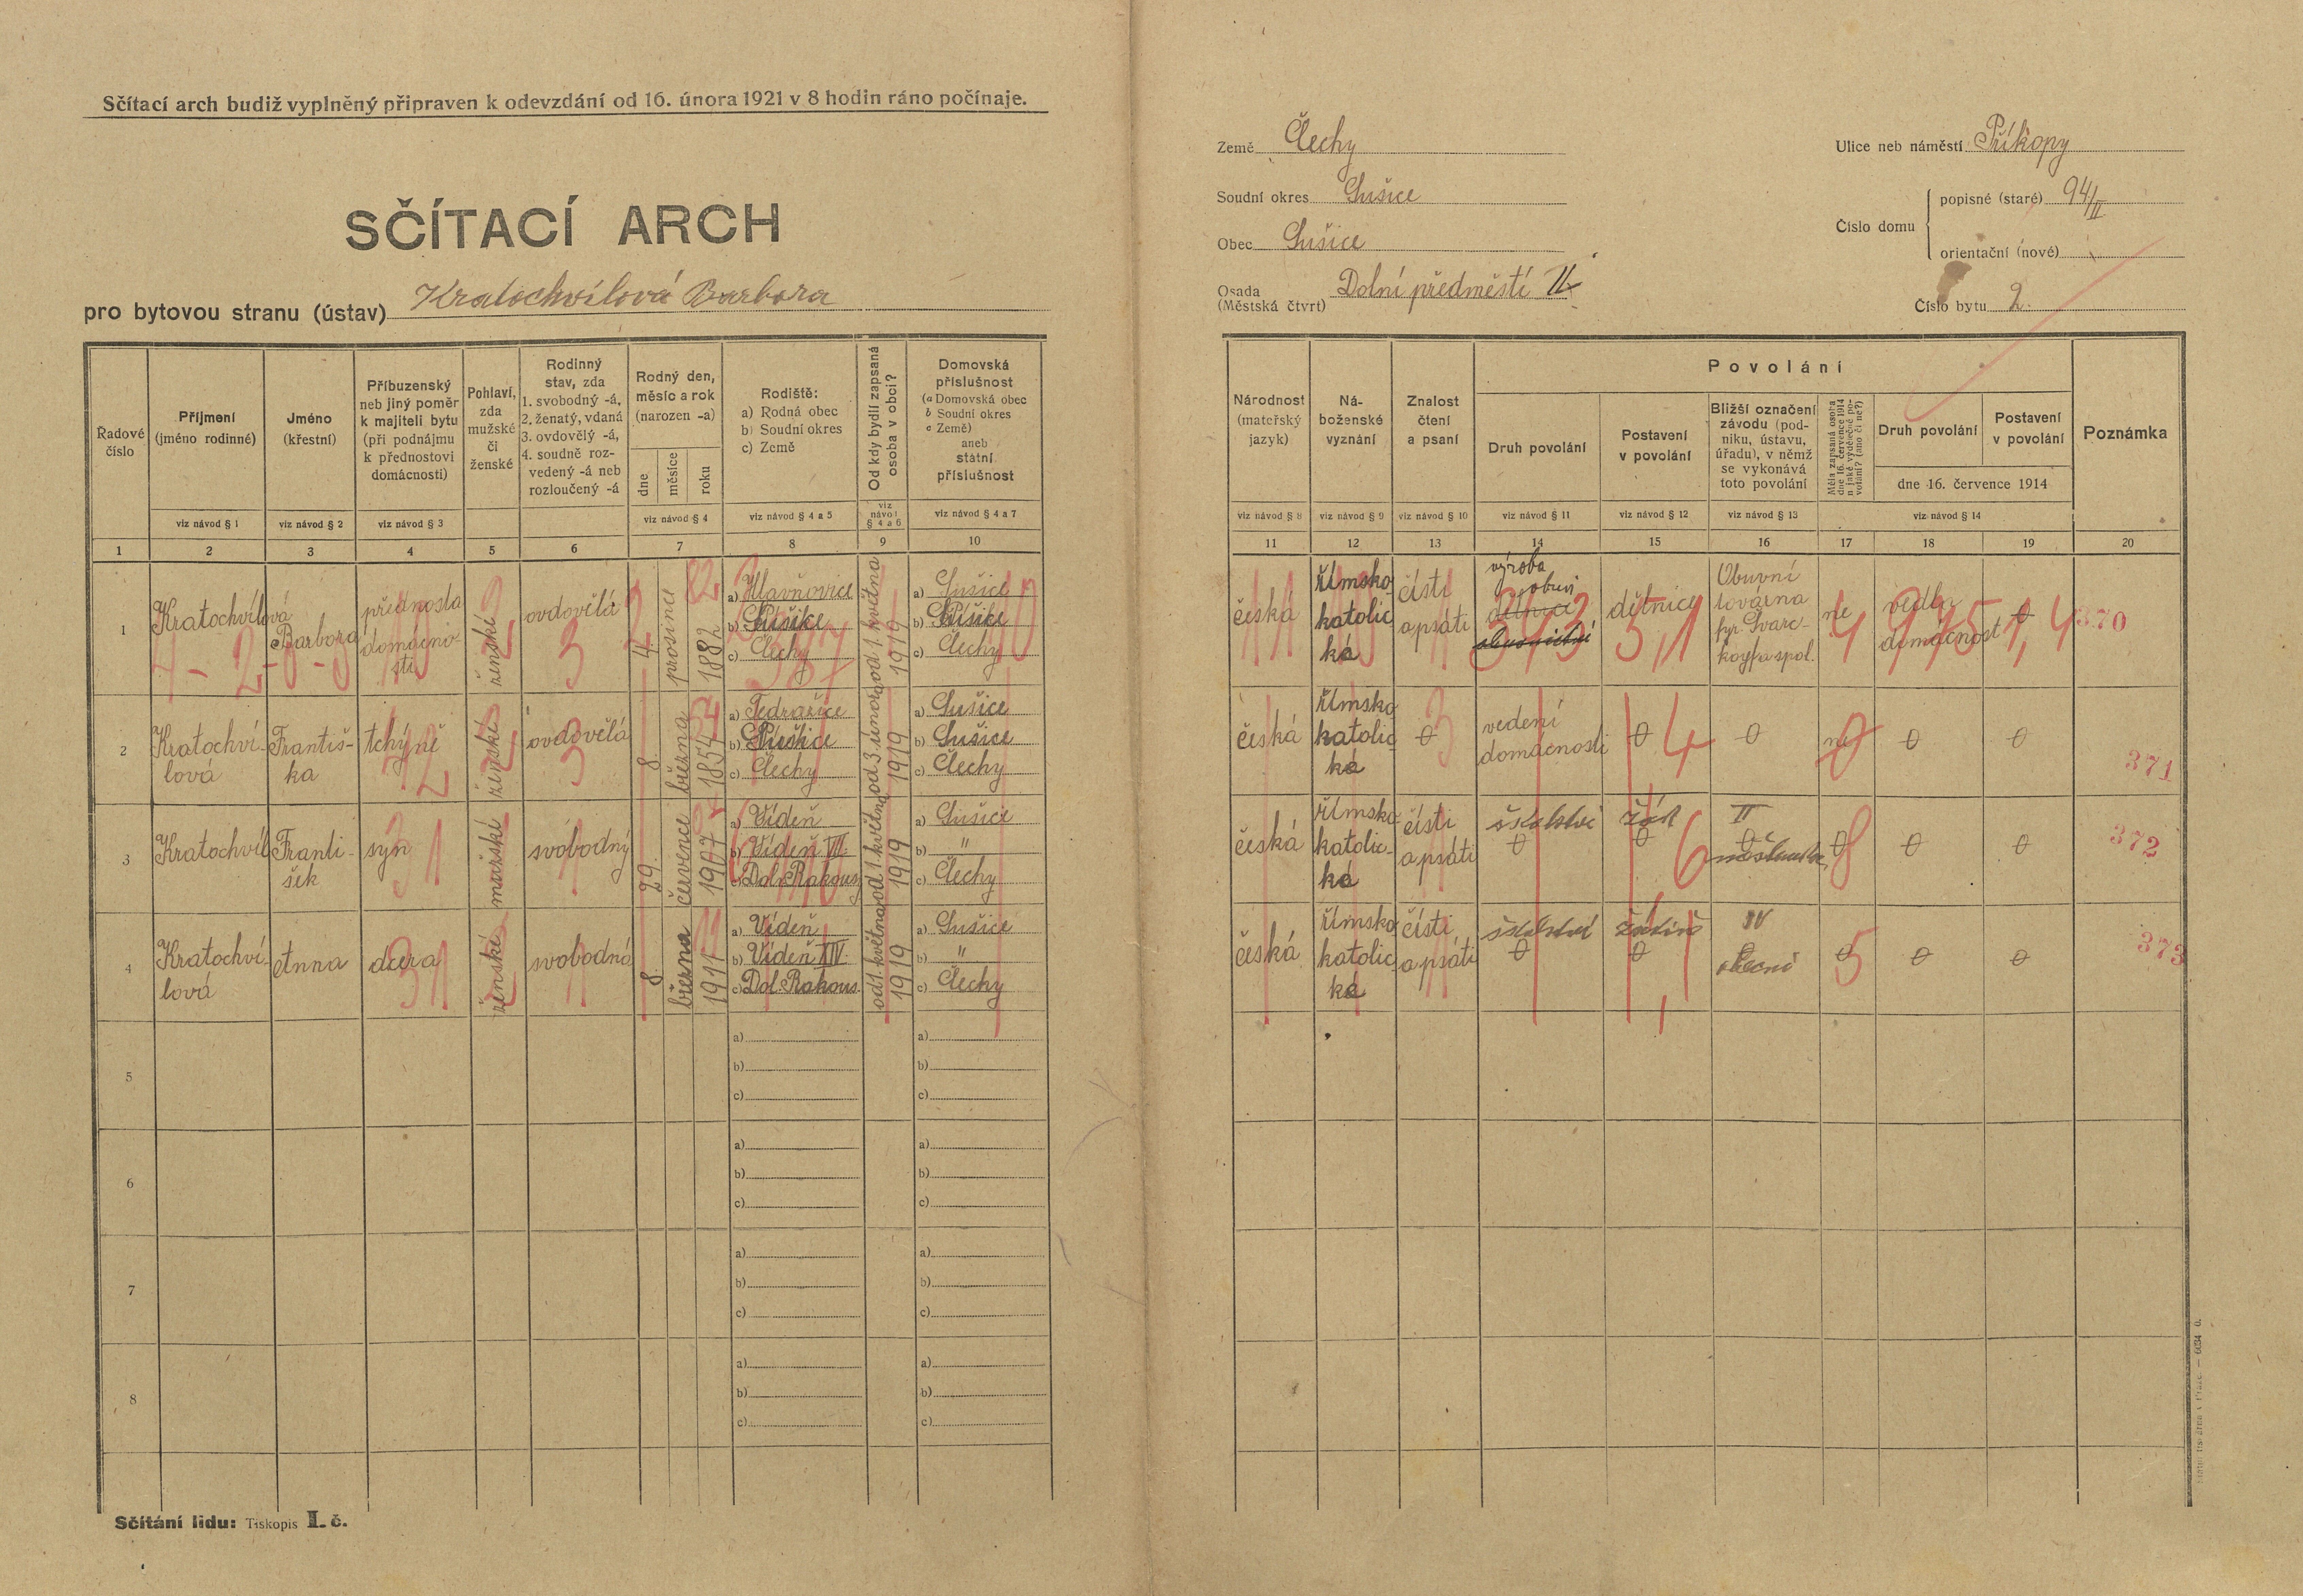 Sčítací arch budiž vyplněný připraven k odevzdání od 16. února 1921 v 8 hodin ráno počínaje.
SČÍTACÍ ARCH
pro bytovou stranu (ústav) Kratochvílová Barbora
Země Čechy
Soudní okres Sušice
Obec Sušice
Osada
(Městská čtvrt) Dolní předměstí II
Ulice neb náměstí Příkopy
Číslo domu
popisné (staré) 94/II
orientační (nové)
Číslo bytu 2.
Řadové
číslo
Příjmení
(jméno rodinné)
viz návod § 1
Jméno
(křestní)
viz návod § 2
Příbuzenský
neb jiný poměr
k majiteli bytu
(při podnájmu
k přednostovi
domácnosti)
viz návod § 3
Pohlaví,
zda
mužské
či
ženské
Rodinný
stav, zda
1. svobodný -á,
2. ženatý, vdaná
3. ovdovělý -á,
4. soudně roz-
vedený -á neb
rozloučený -á
Rodný den,
měsíc a rok
(narozen -a)
dne
měsíce
roku
viz návod § 4
Rodiště:
a) Rodná obec
b) Soudní okres
c) Země
viz návod § 4 a 5
Od kdy bydlí zapsaná
osoba v obci?
viz
návod
§ 4 a 6
Domovská
příslušnost
(a Domovská obec
b Soudní okres
c Země)
aneb
státní
příslušnost
viz návod § 4 a 7
Národnost
(mateřský
jazyk)
viz návod § 8
Ná-
boženské
vyznání
viz návod § 9
Znalost
čtení
a psaní
viz návod § 10
Povolání
Druh povolání
viz návod § 11
Postavení
v povolání
viz návod § 12
Bližší označení
závodu (pod-
niku, ústavu,
úřadu), v němž
se vykonává
toto povolání
viz návod § 13
Měla zapsaná osoba
dne 16. července 1914
n jaké výdělečné po-
volání? (ano či ne?)
Druh povolání
Postavení
v povolání
dne 16. července 1914
viz návod § 14
Poznámka
1 2 3 4 5 6 7 8 9 10 11 12 13 14 15 16 17 18 19 20
1
Kratochvílová
Barbora
přednosta
domácno-
sti
ženské
ovdovělá
4.
prosince
1882
a) Hlavňovice
b) Sušice
c) Čechy
od 1. května
1919
a) Sušice
b) Sušice
c) Čechy
česká
římsko
katolic
ká
čísti
a psáti
výroba
obuvi
dělnice
dělnice
Obuvní
továrna
fy Švarc-
kopf a spol.
ne
vedla
domácnost
0
370
2
Kratochví-
lová
Františ-
ka
tchyně
ženské
ovdovělá
8.
března
1854
a) Jedražice
b) Sušice
c) Čechy
od 3 února
1919
a) Sušice
b) Sušice
c) Čechy
česká
římsko
katolic
ká
0
vedení
domácnosti
0
0
ne
0
0
371
3
Kratochvíl
Franti-
šek
syn
mužské
svobodný
29.
července
1907
a) Vídeň
b) Vídeň VII.
c) Dol. Rakous.
od 1. května
1919
a) Sušice
b) "
c) Čechy
česká
římsko
katolic-
ká
čísti
a psáti
školství
0
žák
0
II
0
měšťanská
0
0
0
372
4
Kratochví-
lová
Anna
dcera
ženské
svobodná
8.
března
1911
a) Vídeň
b) Vídeň XIV.
c) Dol. Rakous.
od 1. května
1919
a) Sušice
b) "
c) Čechy
česká
římsko
katolic
ká
čísti
a psáti
školství
0
žákině
0
IV
obecní
0
0
0
373
5
a)
b)
c)
a)
b)
c)
6
a)
b)
c)
a)
b)
c)
7
a)
b)
c)
a)
b)
c)
8
a)
b)
c)
a)
b)
c)
Sčítání lidu: Tiskopis I. č.